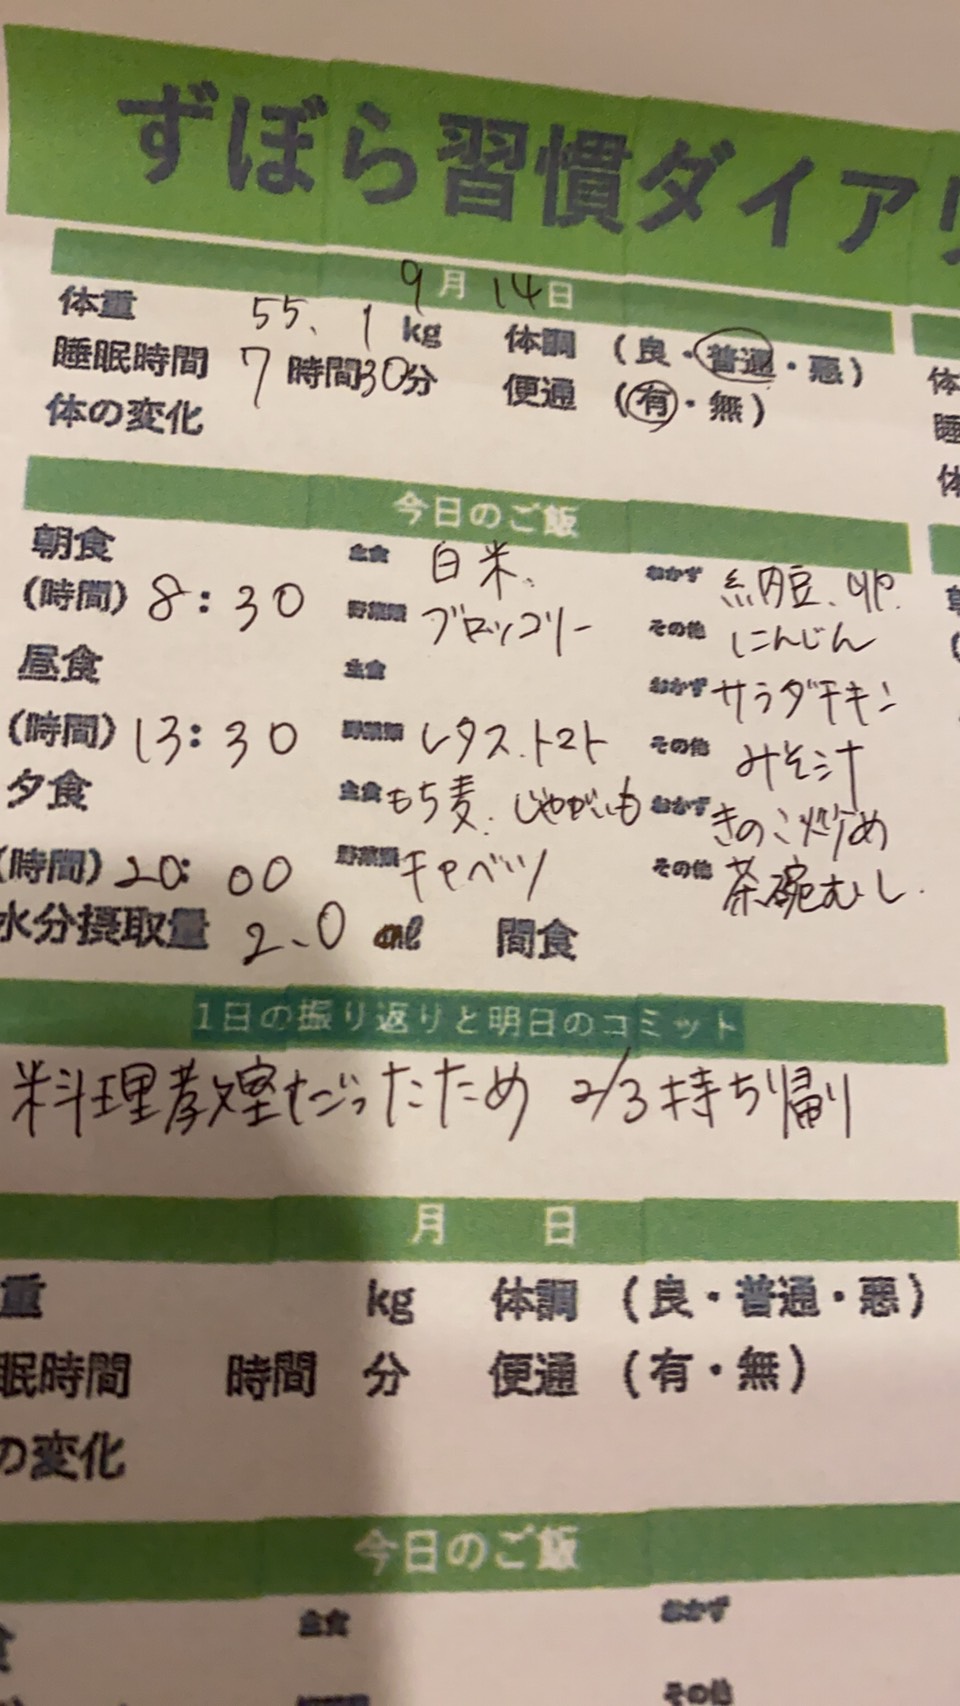 ずぼら習慣ダイアリ
9月14日
体重 55、1 kg 体調 (良・普通・悪)
睡眠時間 7時間30分 便通 (有・無)
体の変化
今日のご飯
朝食 主食 白米、 おかず 納豆、卵
(時間) 8:30 野菜類 ブロッコリー その他 にんじん
昼食 主食 おかず サラダチキン
(時間) 13:30 野菜類 レタス、トマト その他 みそ汁
夕食 主食 もち麦、じゃがいも おかず きのこ炒め
(時間) 20:00 野菜類 キャベツ その他 茶碗むし
水分摂取量 2、0 ℓ 間食
1日の振り返りと明日のコミット
料理教室だったため 2/3持ち帰り
月 日
重 kg 体調 (良・普通・悪)
眠時間 時間 分 便通 (有・無)
の変化
今日のご飯
食 主食 おかず
その他
体
睡
体